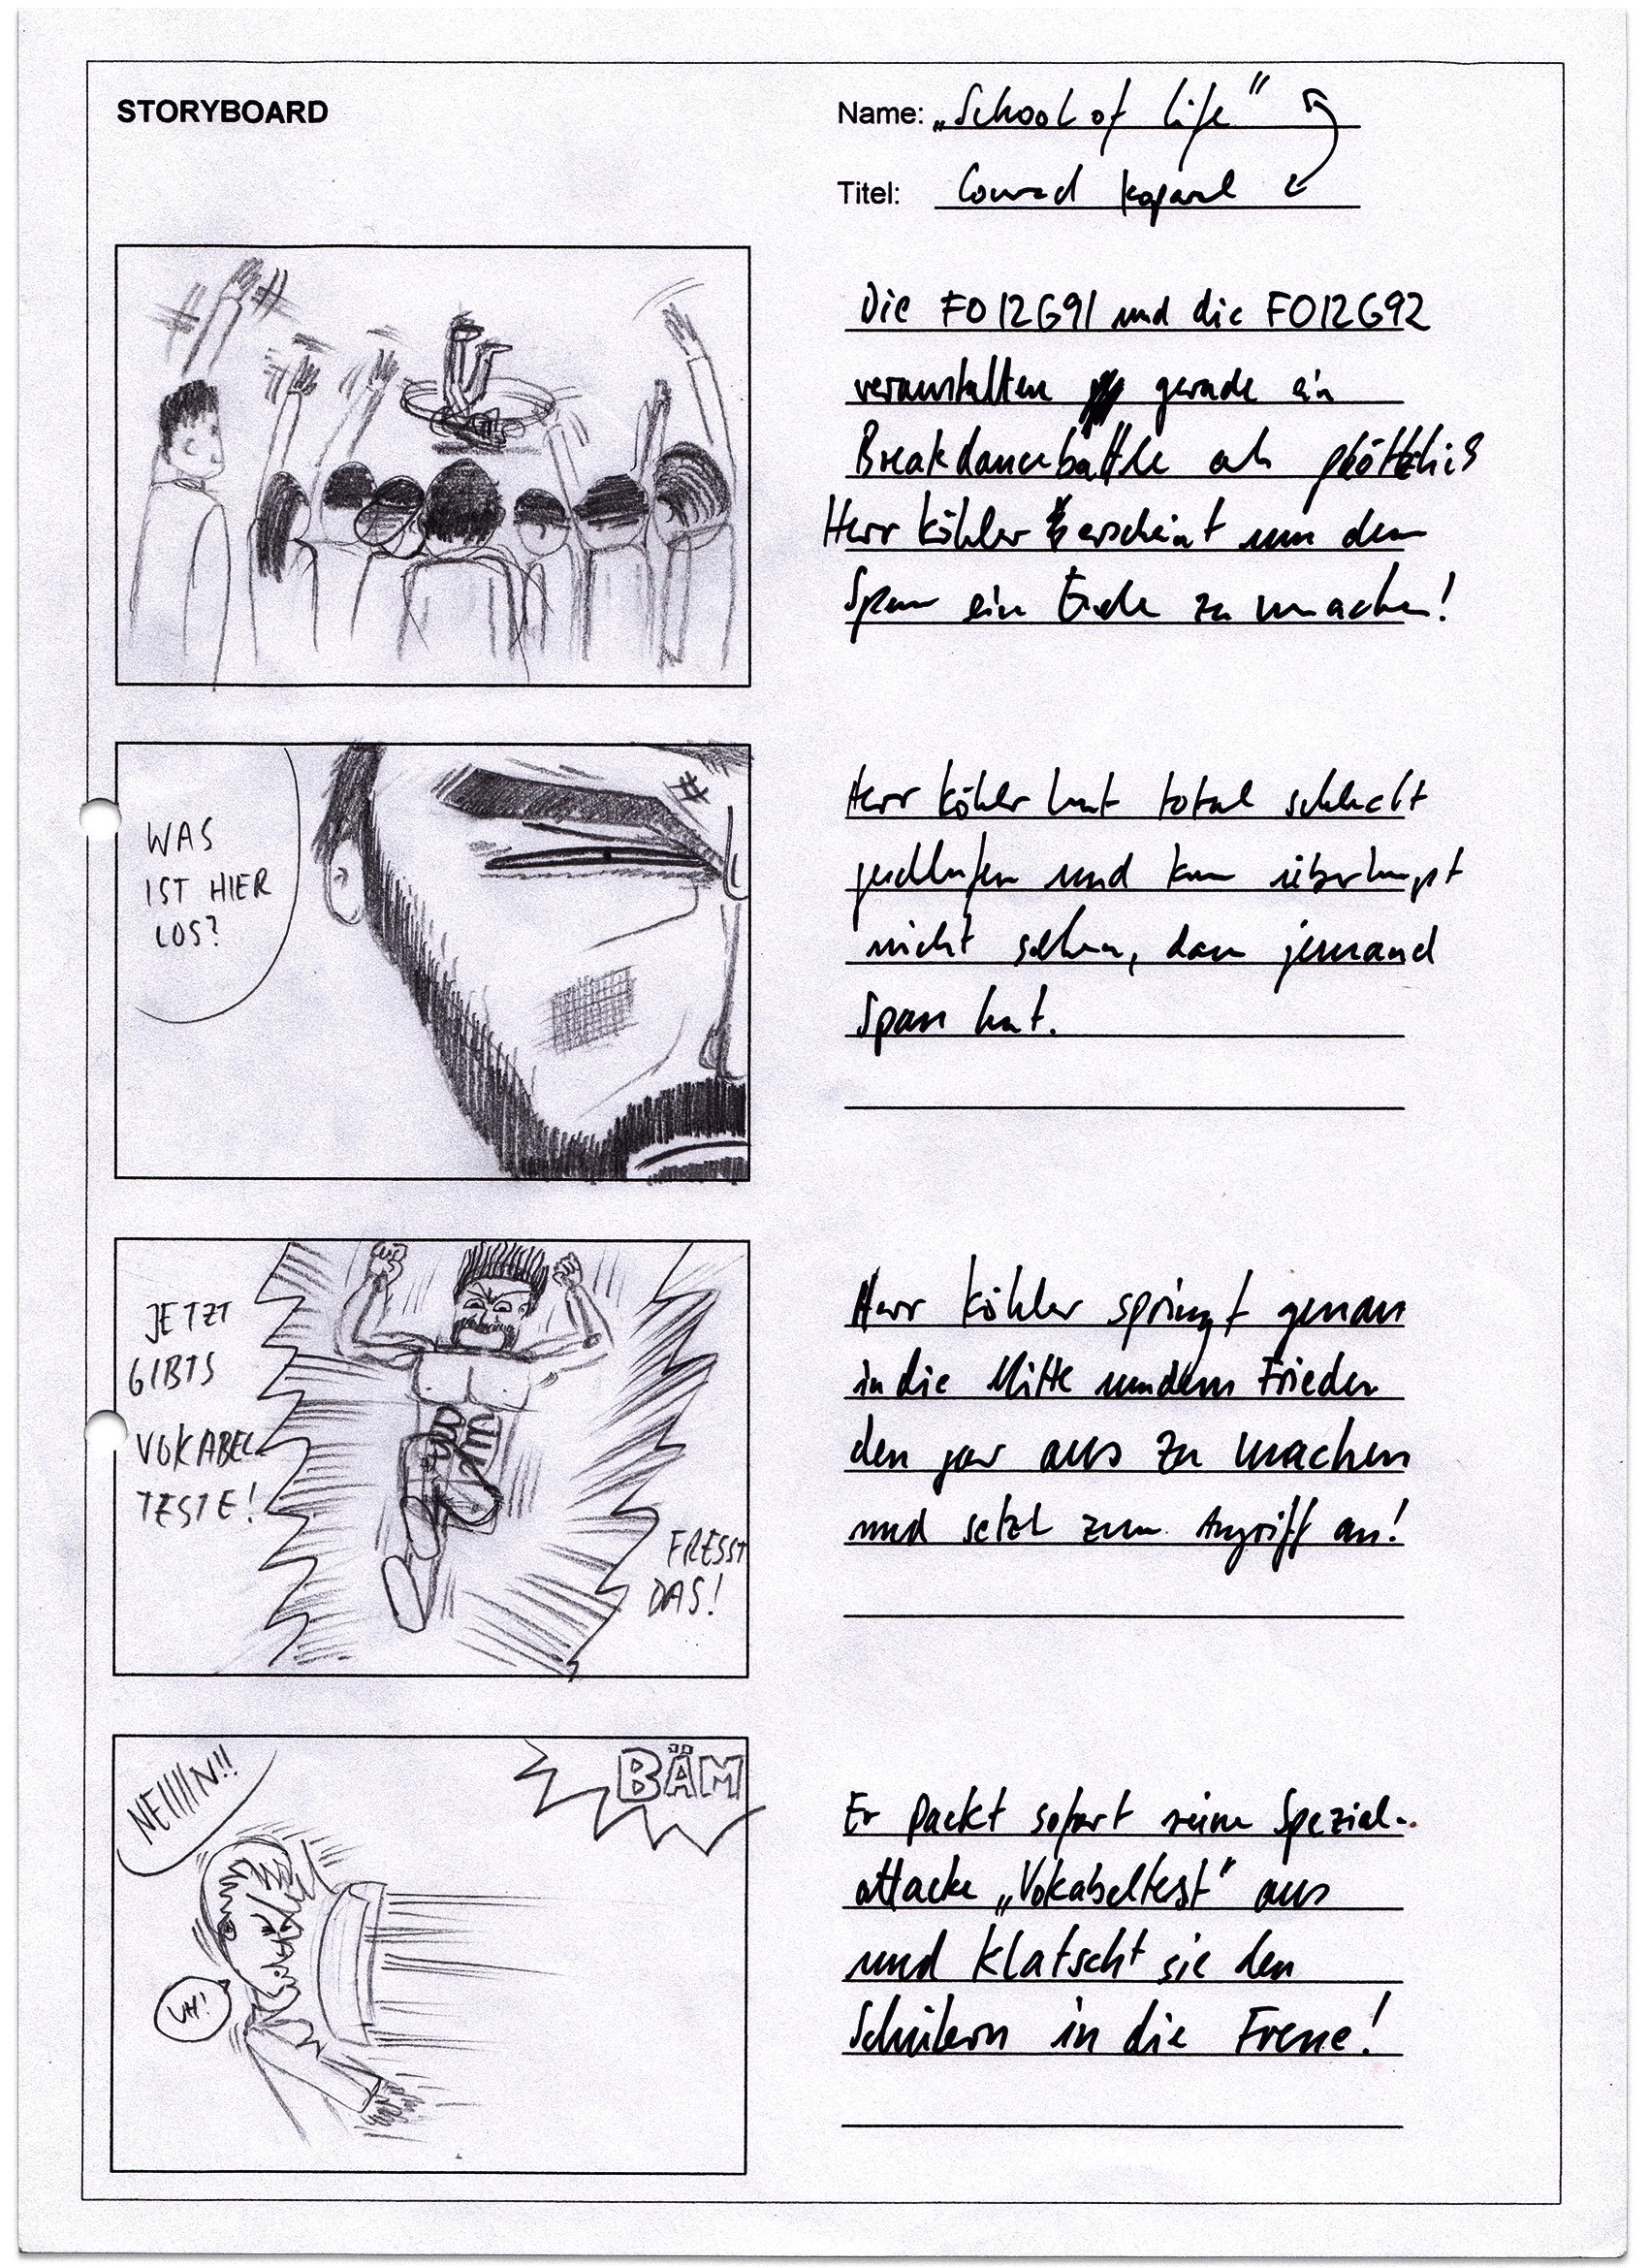 STORYBOARD
Name: „School of life"
Titel: Conrad
Die FO12G91 und die FO12G92
veranstalten gerade ein
Breakdancebattle als plötzlich
Herr Köhler erscheint um dem
Spass ein Ende zu machen!
WAS
IST HIER
LOS?
Herr Köhler hat total schlecht
geschlafen und kann überhaupt
nicht sehen, dass jemand
Spass hat.
JETZT
GIBTS
VOKABEL
TESTE!
FRESST
DAS!
Herr Köhler springt genau
in die Mitte um dem Frieden
den gar aus zu machen
und setzt zum Angriff an!
NEIIIIIN!!
BÄM
UH!
Er packt sofort seine Spezial-
attacke „Vokabeltest" aus
und klatscht sie den
Schülern in die Fresse!